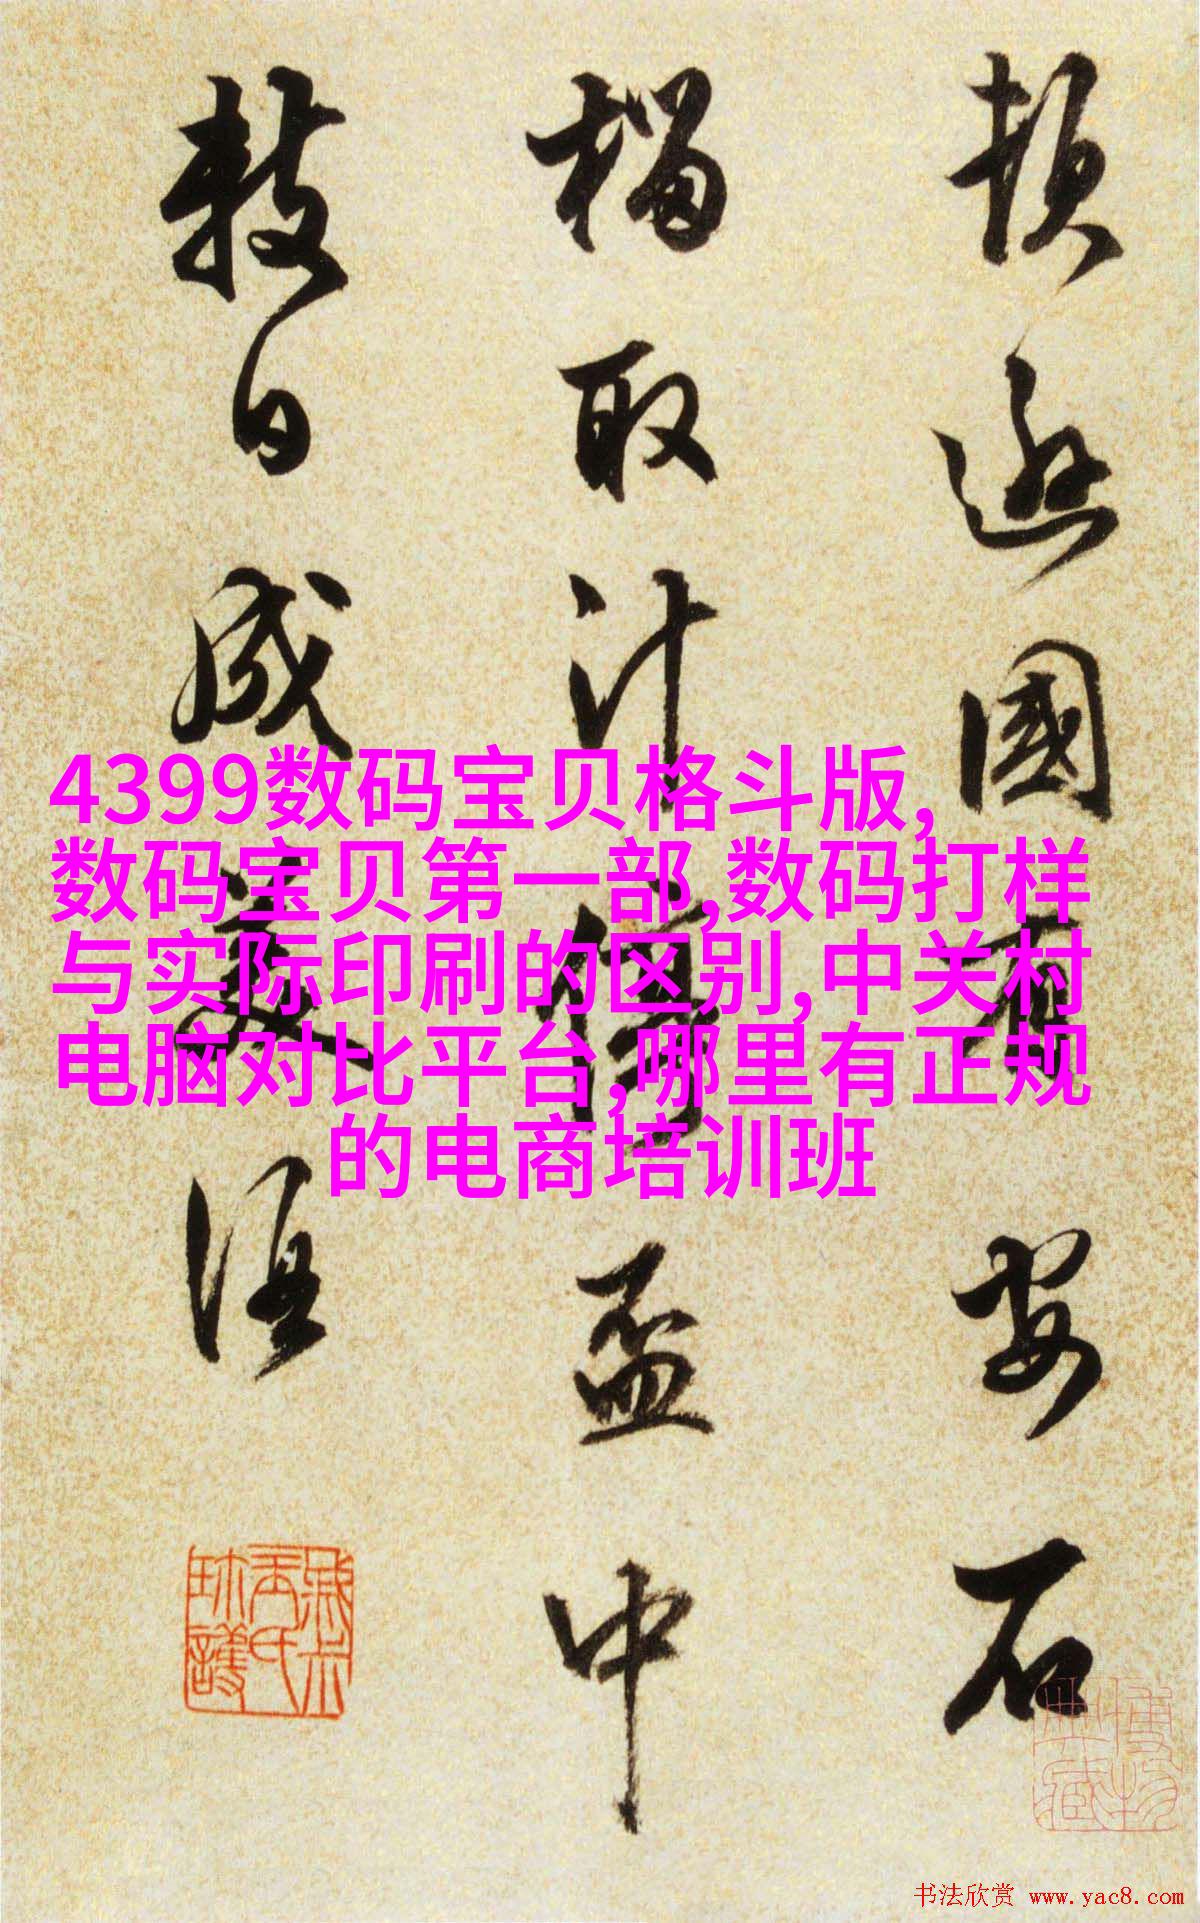 頓遜國有安石
榴取汁停盃中
數日成美酒
4399数码宝贝格斗版,
数码宝贝第一部,数码打样
与实际印刷的区别,中关村
电脑对比平台,哪里有正规
的电商培训班
书法欣赏 www.yac8.com